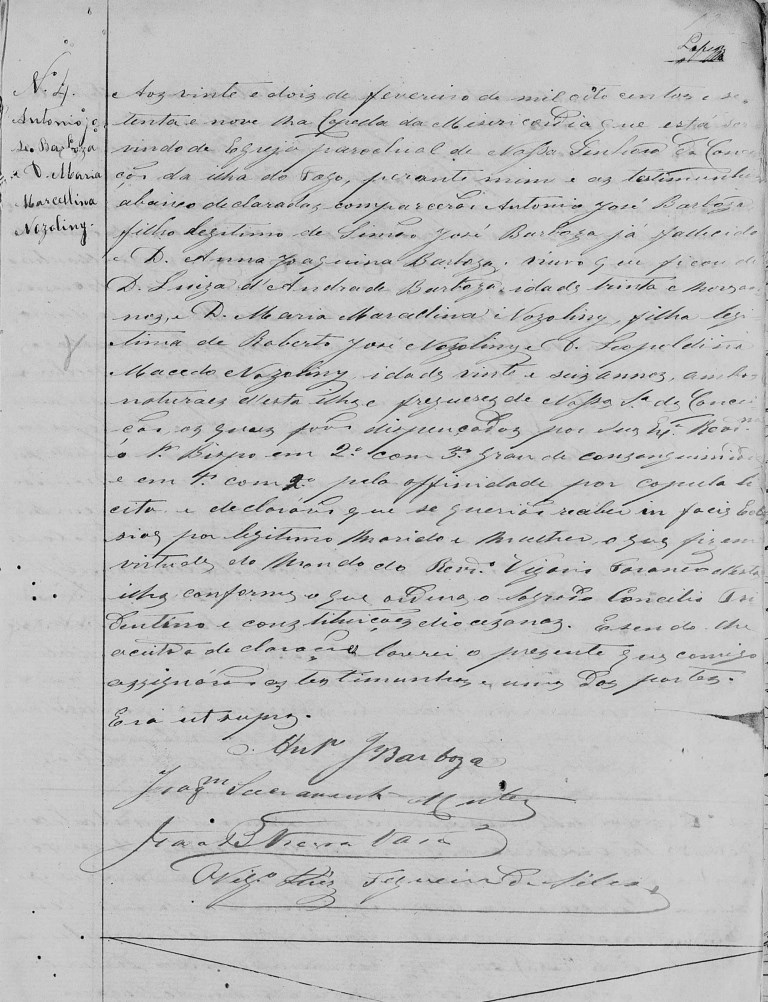 Lopes
Nº 4.
Antonio Jo
sé Barboza
e D. Maria
Marcellina
Nozoliny.
Aos vinte e dois de fevereiro de mil oito centos e se
tenta e nove na Capella da Misericordia que está ser
vindo de Egreja parochial de Nossa Senhora da Concei
ção da ilha do Fogo, perante mim e as testimunhas
abaixo declaradas comparecerão Antonio José Barboza
filho legitimo de Simão José Barboza já fallecido
e D. Anna Joaquina Barboza, viuvo que ficou de
D. Luiza d'Andrade Barboza, idade trinta e nove an
nos, e D. Maria Marcellina Nozoliny, filha legi
tima de Roberto José Nozoliny e D. Leopoldina
Macedo Nozoliny, idade vinte e seis annos, ambos
naturaes d'esta ilha e freguesia de Nossa Sª da Concei
ção, os quaes forão dispençados por Sua Exª Revmª
o Sr. Bispo em 2º com 3º grau de consanguinidade
e em 1º com 2º pela affinidade por copula li
cita e declararão que se querião receber in facie Eccle
sia por legitimo Marido e Mulher, o que fiz em
virtude do Mando do Revdº Vigario Foraneo desta
ilha, conforme o que ordena o Sagrado Concilio Tri
dentino e constituições diocezanas. E sendo lhe
aceita a declaração lavrei o presente que comigo
assignárão as testimunhas e uma das partes.
Era ut supra.
Antº Jé Barboza
Joaqm Sacramento Monteiro
João B Vieira Vasco
Vigº Luiz Figueira da Silva